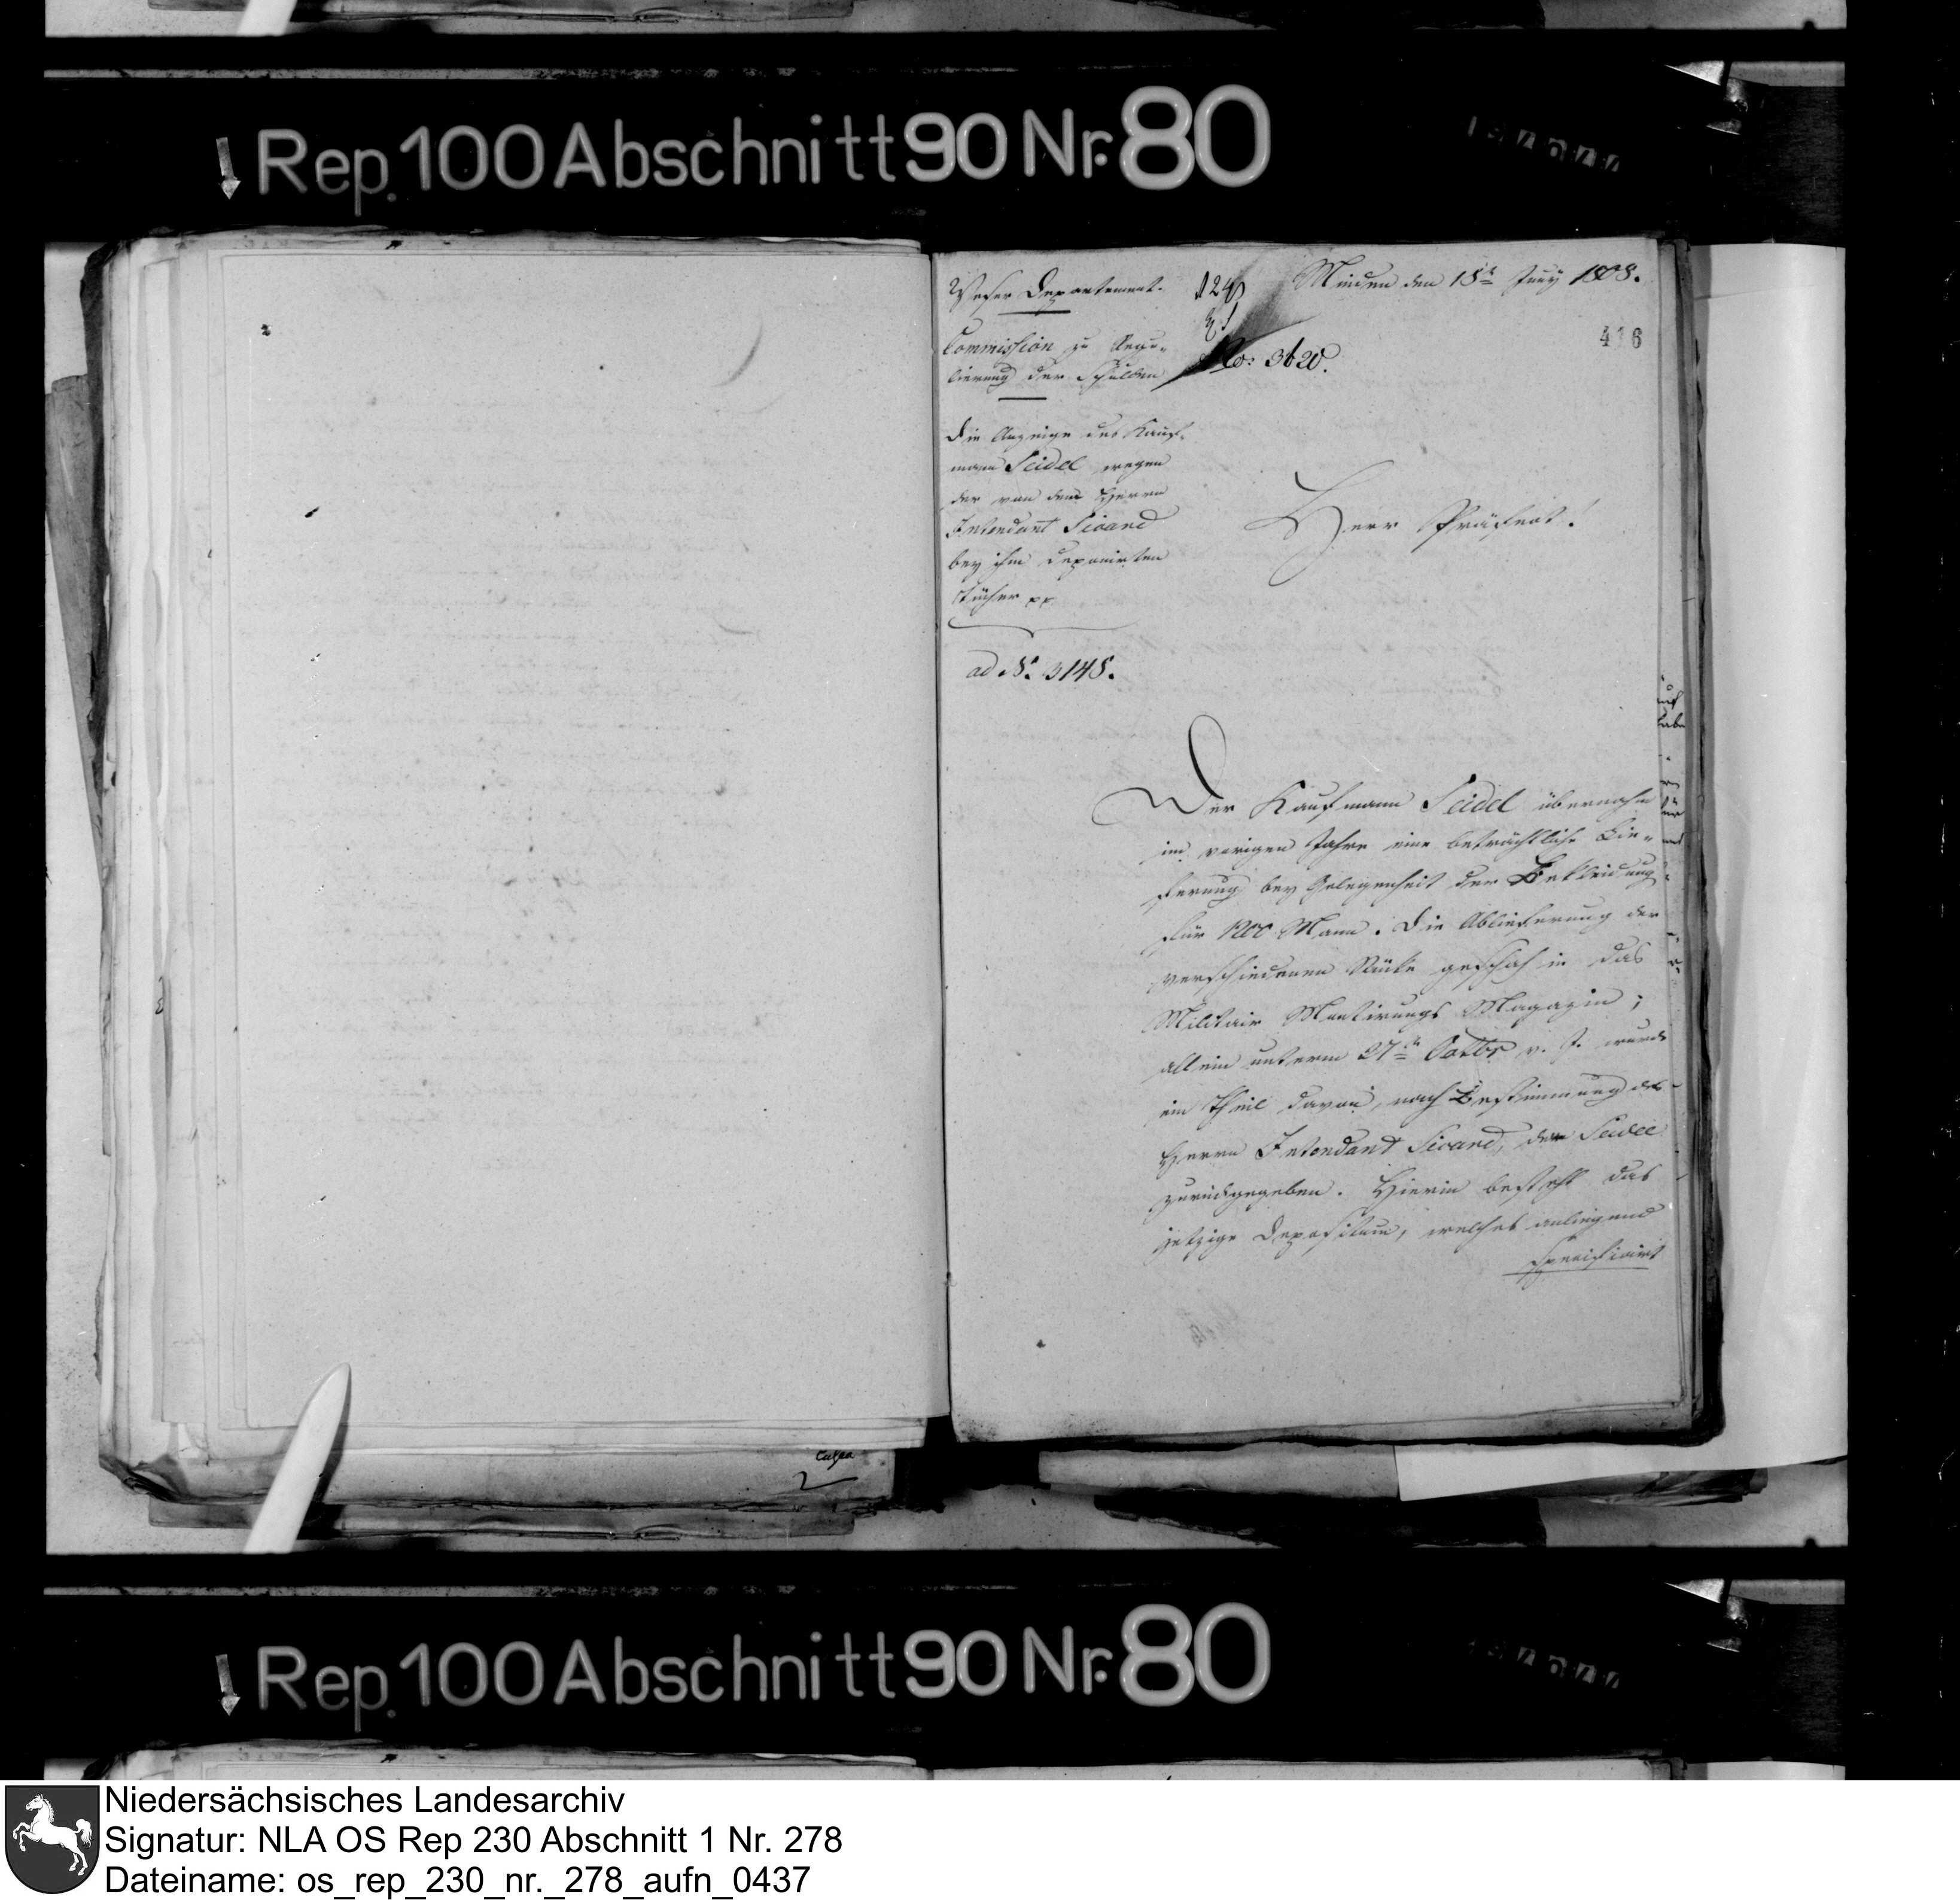 Rep. 100 Abschnitt 90 Nr. 80
Weser Departement.
Commission zu Regu-
lierung der Schulden
Die Anzeige des Kauf-
mann Seidel wegen
der von dem Herrn
Intendant Sicard
bey ihm deponirten
Tücher pp
ad N. 3148.
Minden den 18ten Juny 1808.
416
No: 3620.
Herr Präfect!
Der Kaufmann Seidel übernahm
im vorigen Jahre eine beträchtliche Lie-
ferung bey Gelegenheit der Bekleidung
für 1200 Mann. Die Ablieferung der
verschiedenen Stücke geschah in das
Militair Montirungs Magazin;
allein unterm 27ten Octbr v. J. wurde
ein Theil davon, nach Bestimmung des
Herrn Intendant Sicard, dem Seidel
zurückgegeben. Hierin besteht das
jetzige Depositum, welches anliegend
specificirt
Rep. 100 Abschnitt 90 Nr. 80
Niedersächsisches Landesarchiv
Signatur: NLA OS Rep 230 Abschnitt 1 Nr. 278
Dateiname: os_rep_230_nr._278_aufn_0437